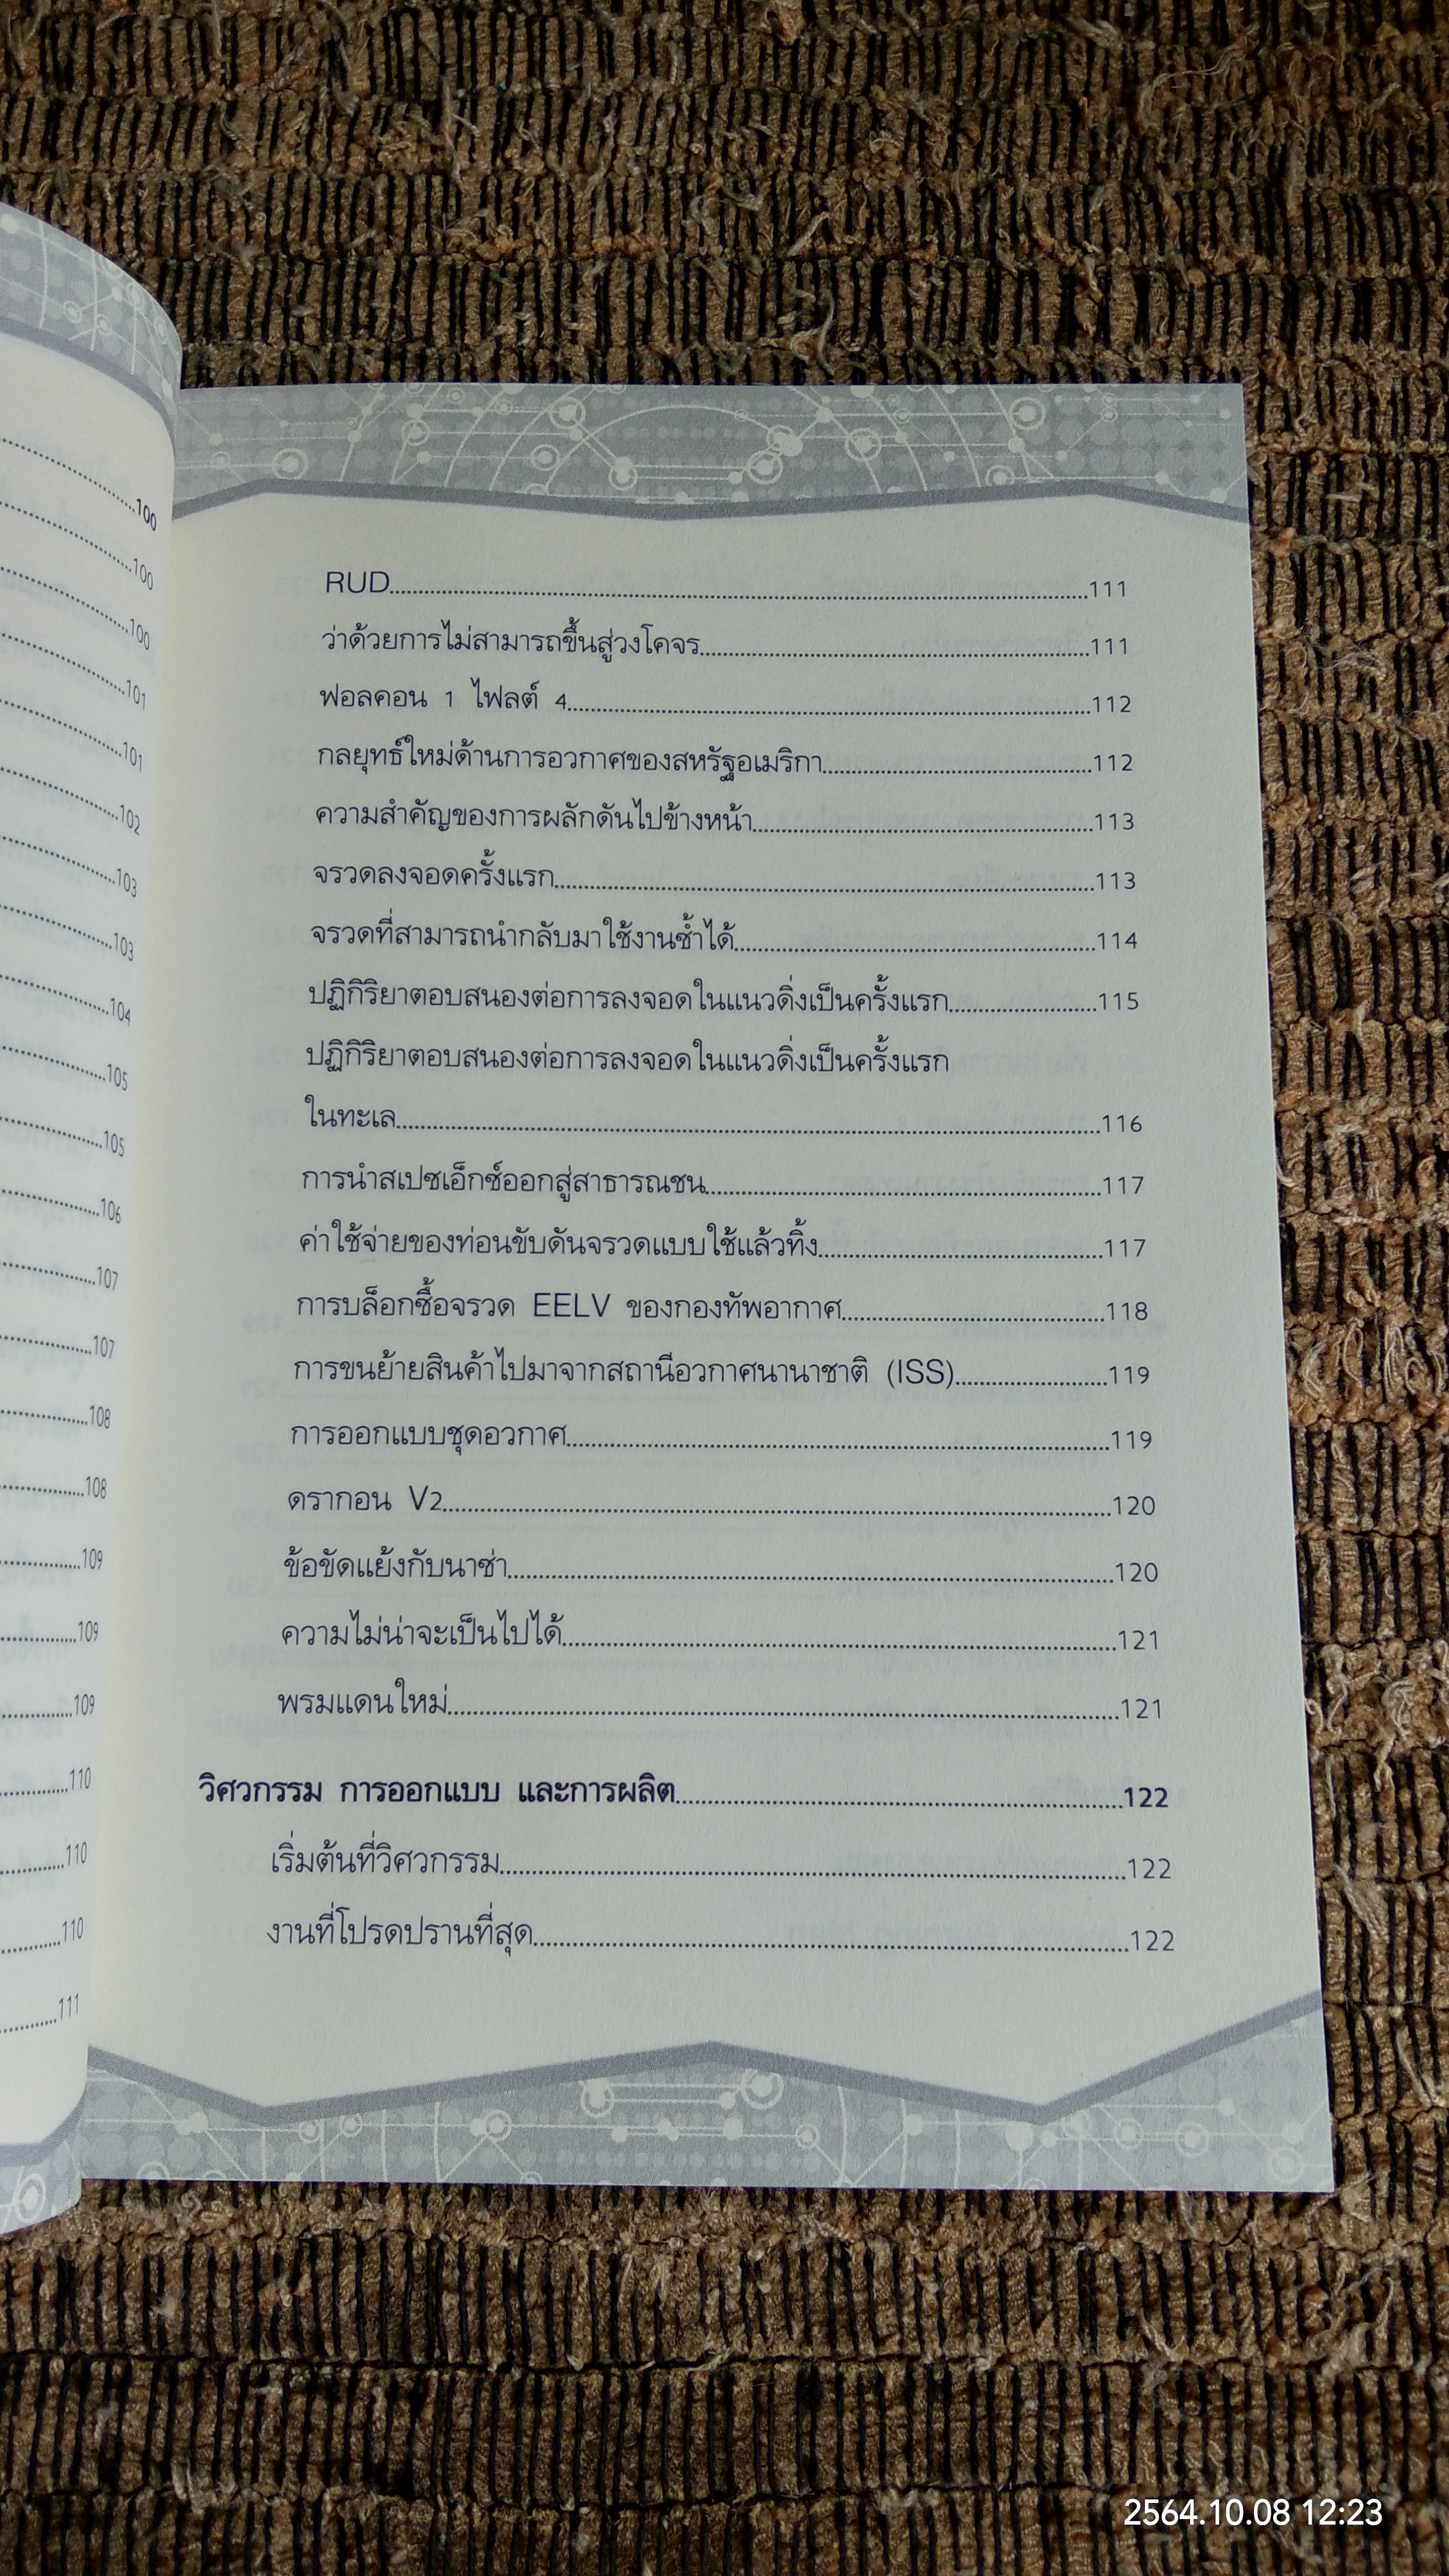 100
100
100
101
101
102
103
103
104
105
105
106
107
107
108
108
109
109
109
110
110
110
111
RUD 111
ว่าด้วยการไม่สามารถขึ้นสู่วงโคจร 111
ฟอลคอน 1 ไฟลต์ 4 112
กลยุทธ์ใหม่ด้านการอวกาศของสหรัฐอเมริกา 112
ความสำคัญของการผลักดันไปข้างหน้า 113
จรวดลงจอดครั้งแรก 113
จรวดที่สามารถนำกลับมาใช้งานซ้ำได้ 114
ปฏิกิริยาตอบสนองต่อการลงจอดในแนวดิ่งเป็นครั้งแรก 115
ปฏิกิริยาตอบสนองต่อการลงจอดในแนวดิ่งเป็นครั้งแรก
ในทะเล 116
การนำสเปซเอ็กซ์ออกสู่สาธารณชน 117
ค่าใช้จ่ายของท่อนขับดันจรวดแบบใช้แล้วทิ้ง 117
การบล็อกซื้อจรวด EELV ของกองทัพอากาศ 118
การขนย้ายสินค้าไปมาจากสถานีอวกาศนานาชาติ (ISS) 119
การออกแบบชุดอวกาศ 119
ดรากอน V2 120
ข้อขัดแย้งกับนาซ่า 120
ความไม่น่าจะเป็นไปได้ 121
พรมแดนใหม่ 121
วิศวกรรม การออกแบบ และการผลิต 122
เริ่มต้นที่วิศวกรรม 122
งานที่โปรดปรานที่สุด 122
2564.10.08 12:23